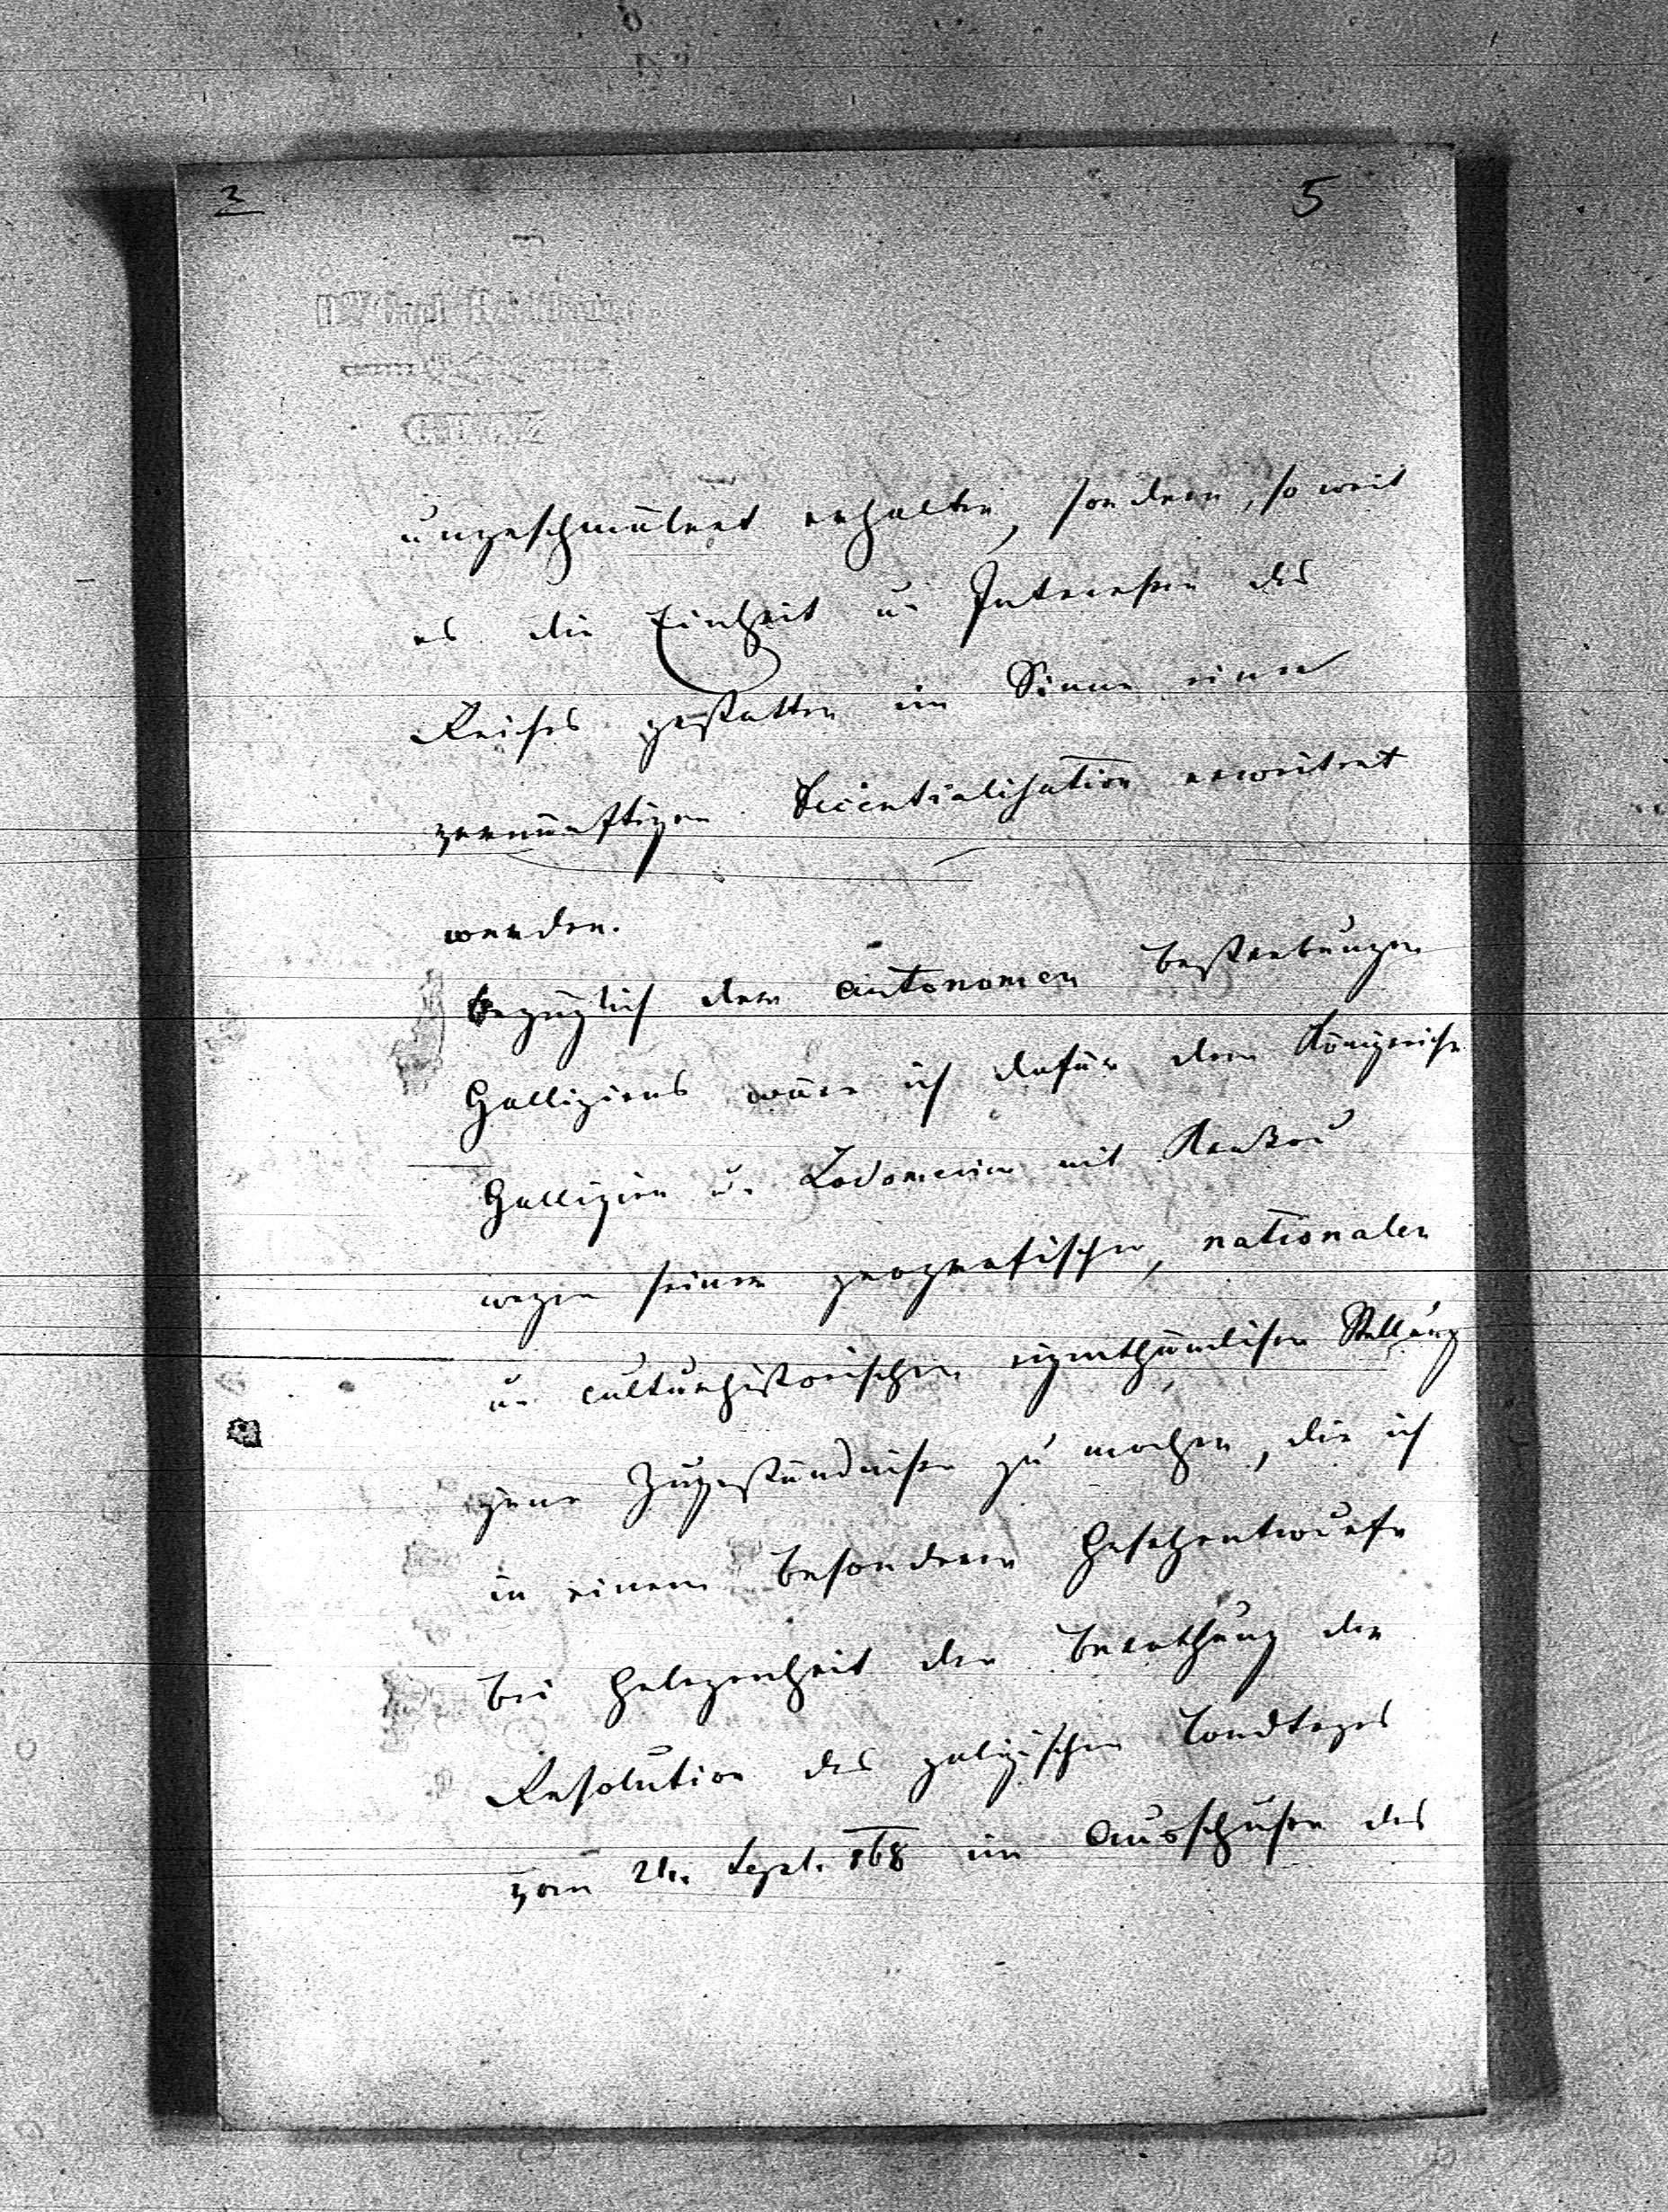 3
5
ungeschmälert erhalten, sondern, so weit
es die Einheit u. Interessen des
Reiches gestatten im Sinne einer
vernünftigen Decentralisation erweitert
werden.
Bezüglich der autonomen Bestrebungen
Galliziens wäre ich dafür dem Königreiche
Gallizien u. Lodomerien mit Krakau
wegen seiner geografischen, nationalen
u. culturhistorischen eigenthümlichen Stellung
jene Zugeständnisse zu machen, die ich
in einem besonderen Gesetzentwurfe
bei Gelegenheit der Berathung der
Resolution des galizischen Landtages
vom 24. Sept. 868 im Ausschusse des